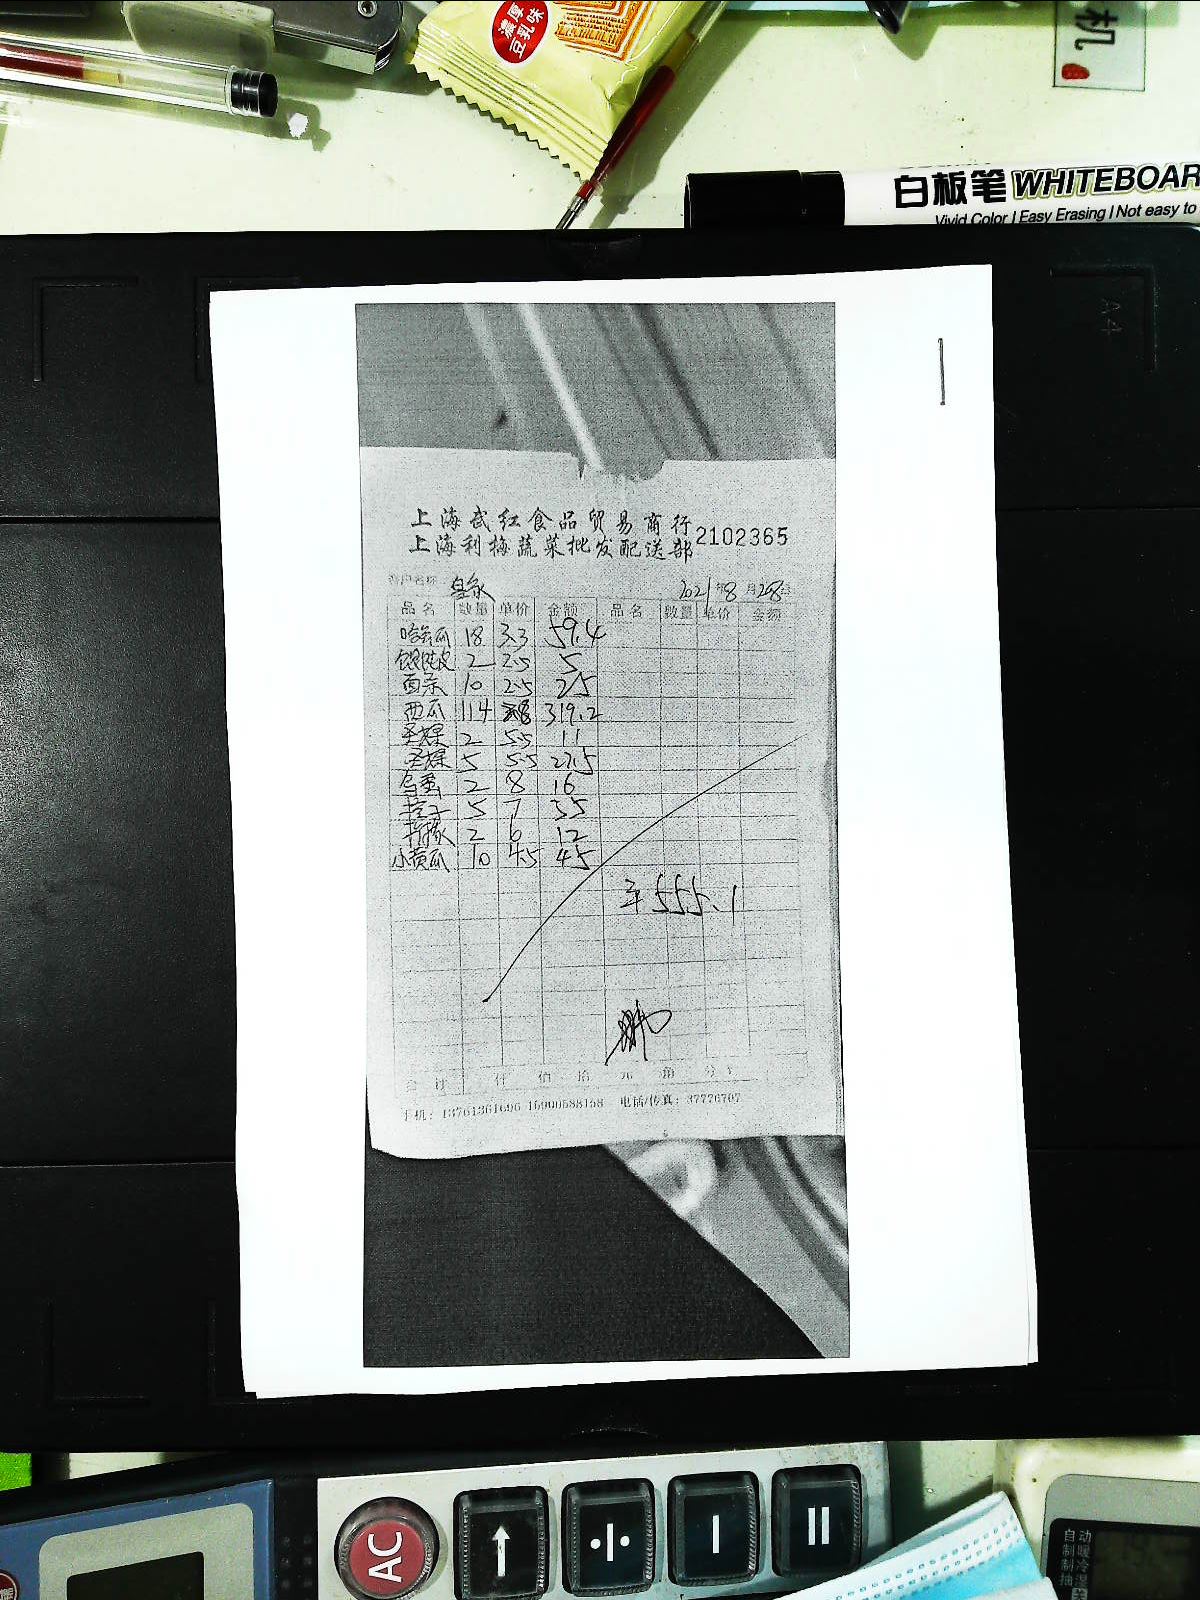 濃厚
豆乳味
机
白板笔 WHITEBOAR
Vivid Color / Easy Erasing / Not easy to
A4
上海武红食品贸易商行
上海利梅蔬菜批发配送部 2102365
客户名称:
2021年8月28日
品名 数量 单价 金额 品名 数量 单价 金额
哈密瓜 18 3.3 59.4
馄饨皮 2 2.5 5
面条 10 2.5 25
西瓜 114 2.8 319.2
圣果 2 5.5 11
圣果 5 5.5 27.5
乌 2 8 16
5 7 35
2 6 12
小黄瓜 10 4.5 45
¥555.1
合计 仟 佰 拾 元 角 分
手机: 13761361696 15900588158 电话/传真: 37776707
AC
↑
÷
−
=
自动
制暖
制冷
抽湿